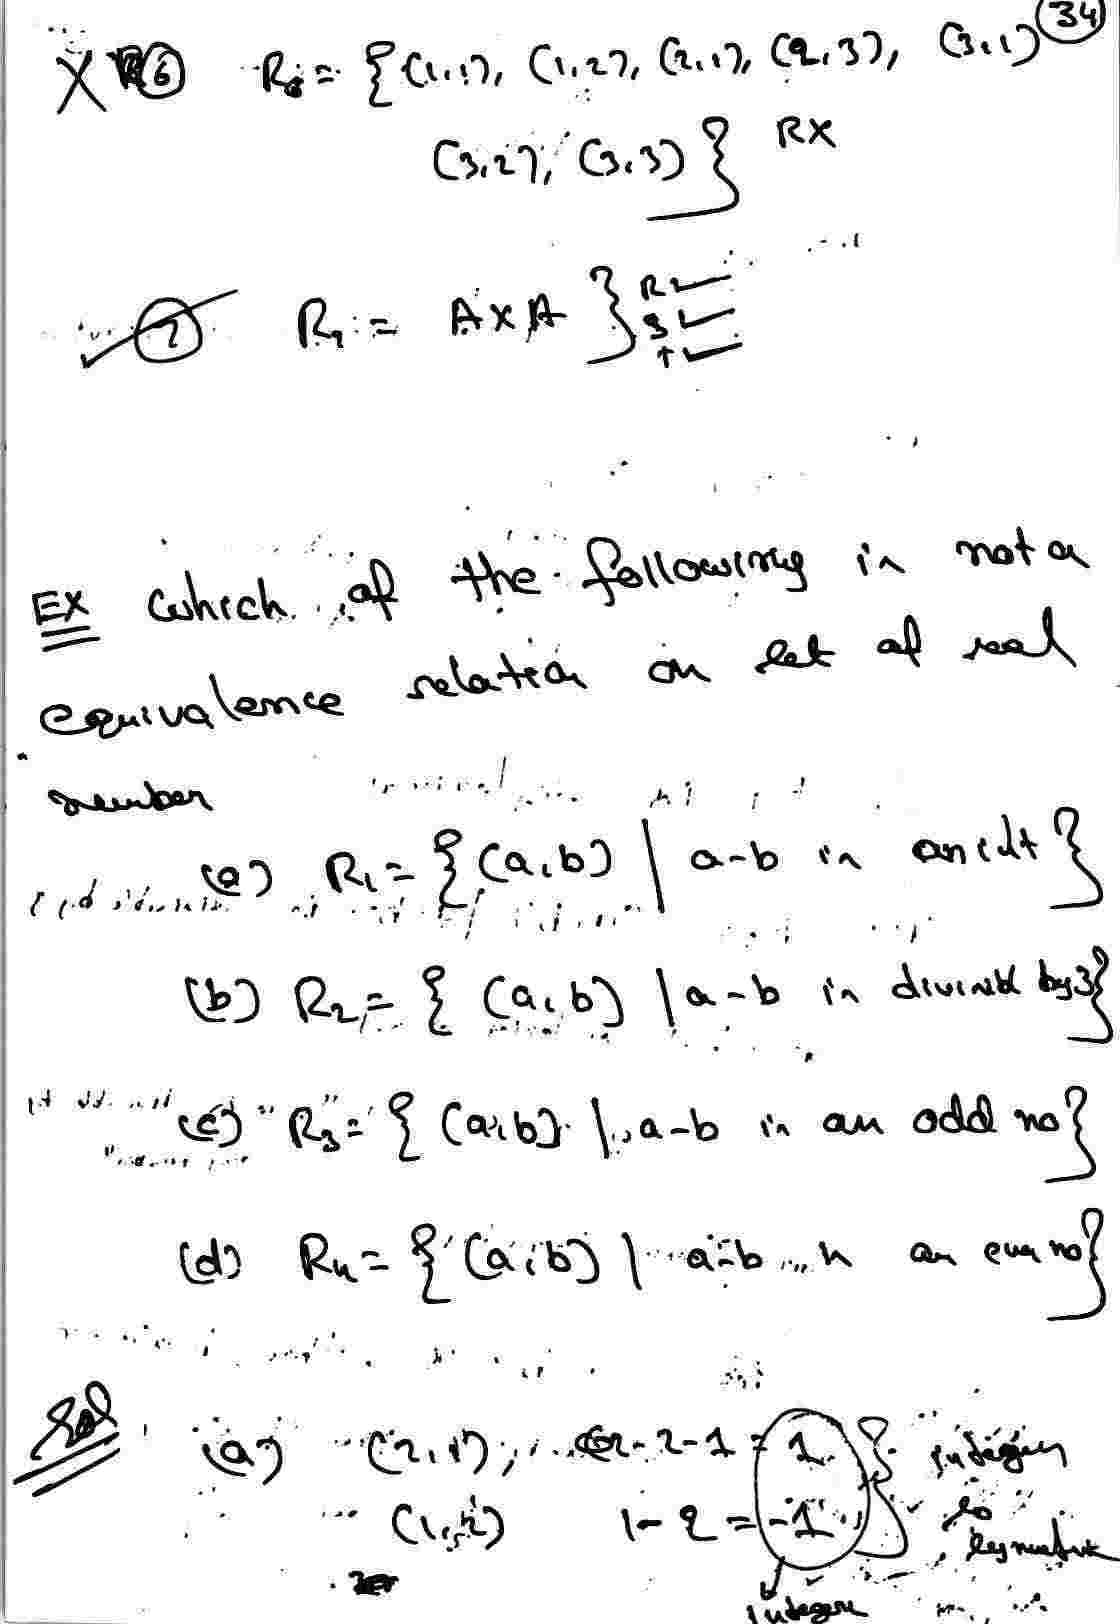 34
X 6 R6 = {(1,1), (1,2), (2,1), (2,3), (3,1)
(3,2), (3,3)} RX
7 R7 = A×A } R ✓
S ✓
T ✓
EX which of the following is not a
equivalence relation on set of real
number
(a) R1 = {(a,b) | a-b is an int}
(b) R2 = {(a,b) | a-b is divisible by 3}
(c) R3 = {(a,b) | a-b is an odd no}
(d) R4 = {(a,b) | a-b is an even no}
Sol (a) (2,1), 2-1 = 1 } integer
(1,2) 1-2 = -1 so
symmetric
integer